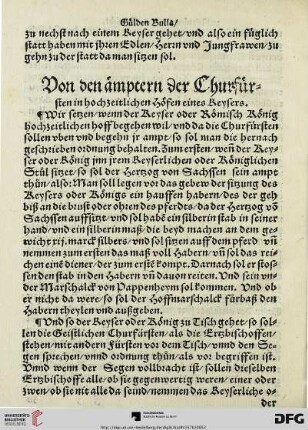 Gülden Bulla/
zu nechst nach einem Keyser gehet/ vnd also ein füglich
statt haben mit jhren Edlen/ Herrn vnd Jungfrawen/ zu
gehn zu der statt da man sitzen sol.
Von den ämptern der Churfür-
sten in hochzeitlichen Höfen eines Keysers.
¶Wir setzen/ wenn der Keyser oder Römisch König
hochzeitlichen hoff begehen wil/ vnd da die Churfürsten
sollen vben vnd begehn jr ampt/ so sol man die hernach
geschrieben ordnung behalten. Zum ersten/ weñ der Key-
ser oder König jnn jrem Keyserlichen oder Königlichen
Stül sitzet/ so sol der Hertzog von Sachssen sein ampt
thün/ also: Man soll legen vor das gebew der sitzung des
Keysers oder Königs ein hauffen habern/ des der geh
biß an die bust oder an den des pferdts/ da der Hertzog võ
Sachssen auffsitzt/ vnd sol habẽ ein silberin stab in seiner
hand/ vnd ein silberin maß/ die beyd machen an dem ge-
wicht xij. marck silbers/ vnd sol sitzen auff dem pferd vñ
nemmen zum ersten das maß voll Habern/ vñ sol das rei-
chen eine diener/ der zum erstẽ kompt. Darnach sol er stos-
sen den stab in den Habern vñ dauon reiten. Vnd sein vn-
der Marschalck von Pappenheym sol kommen. Vnd ob
er nicht da were/ so sol der Hoffmarschalck fürbaß den
Habern theylen vnd außgeben.
¶Vnd so der Keyser oder König zu Tisch gehet/ so sol-
len die Geistlichen Churfürsten/ als die Ertzbischoffen/
stehen/ mit andern Fürsten vor dem Tisch/ vnnd der Se-
gen sprechen/ vnnd ordnung thün/ als vor begriffen ist.
Vnnd wenn der Segen vollbracht ist/ sollen dieselben
Ertzbischoffe alle/ ob sie gegenwertig weren/ einer oder
zwen/ ob sie nit alle da seind/ nemmen das Keyserliche o-
der
UNIVERSITÄTS-
BIBLIOTHEK
HEIDELBERG
DFG